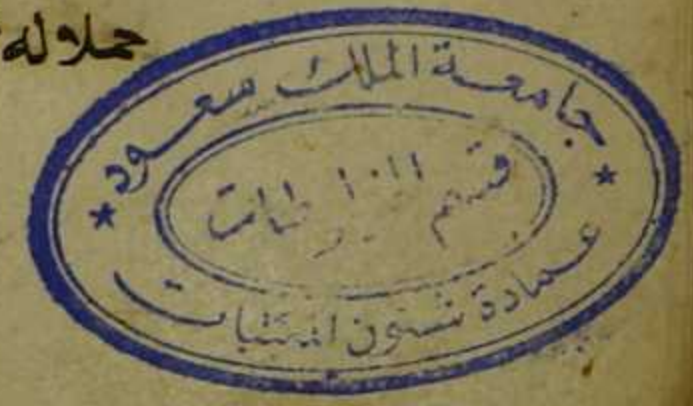 حملا له
جامعة الملك سعود
قسم المخطوطات
عمادة شئون المكتبات